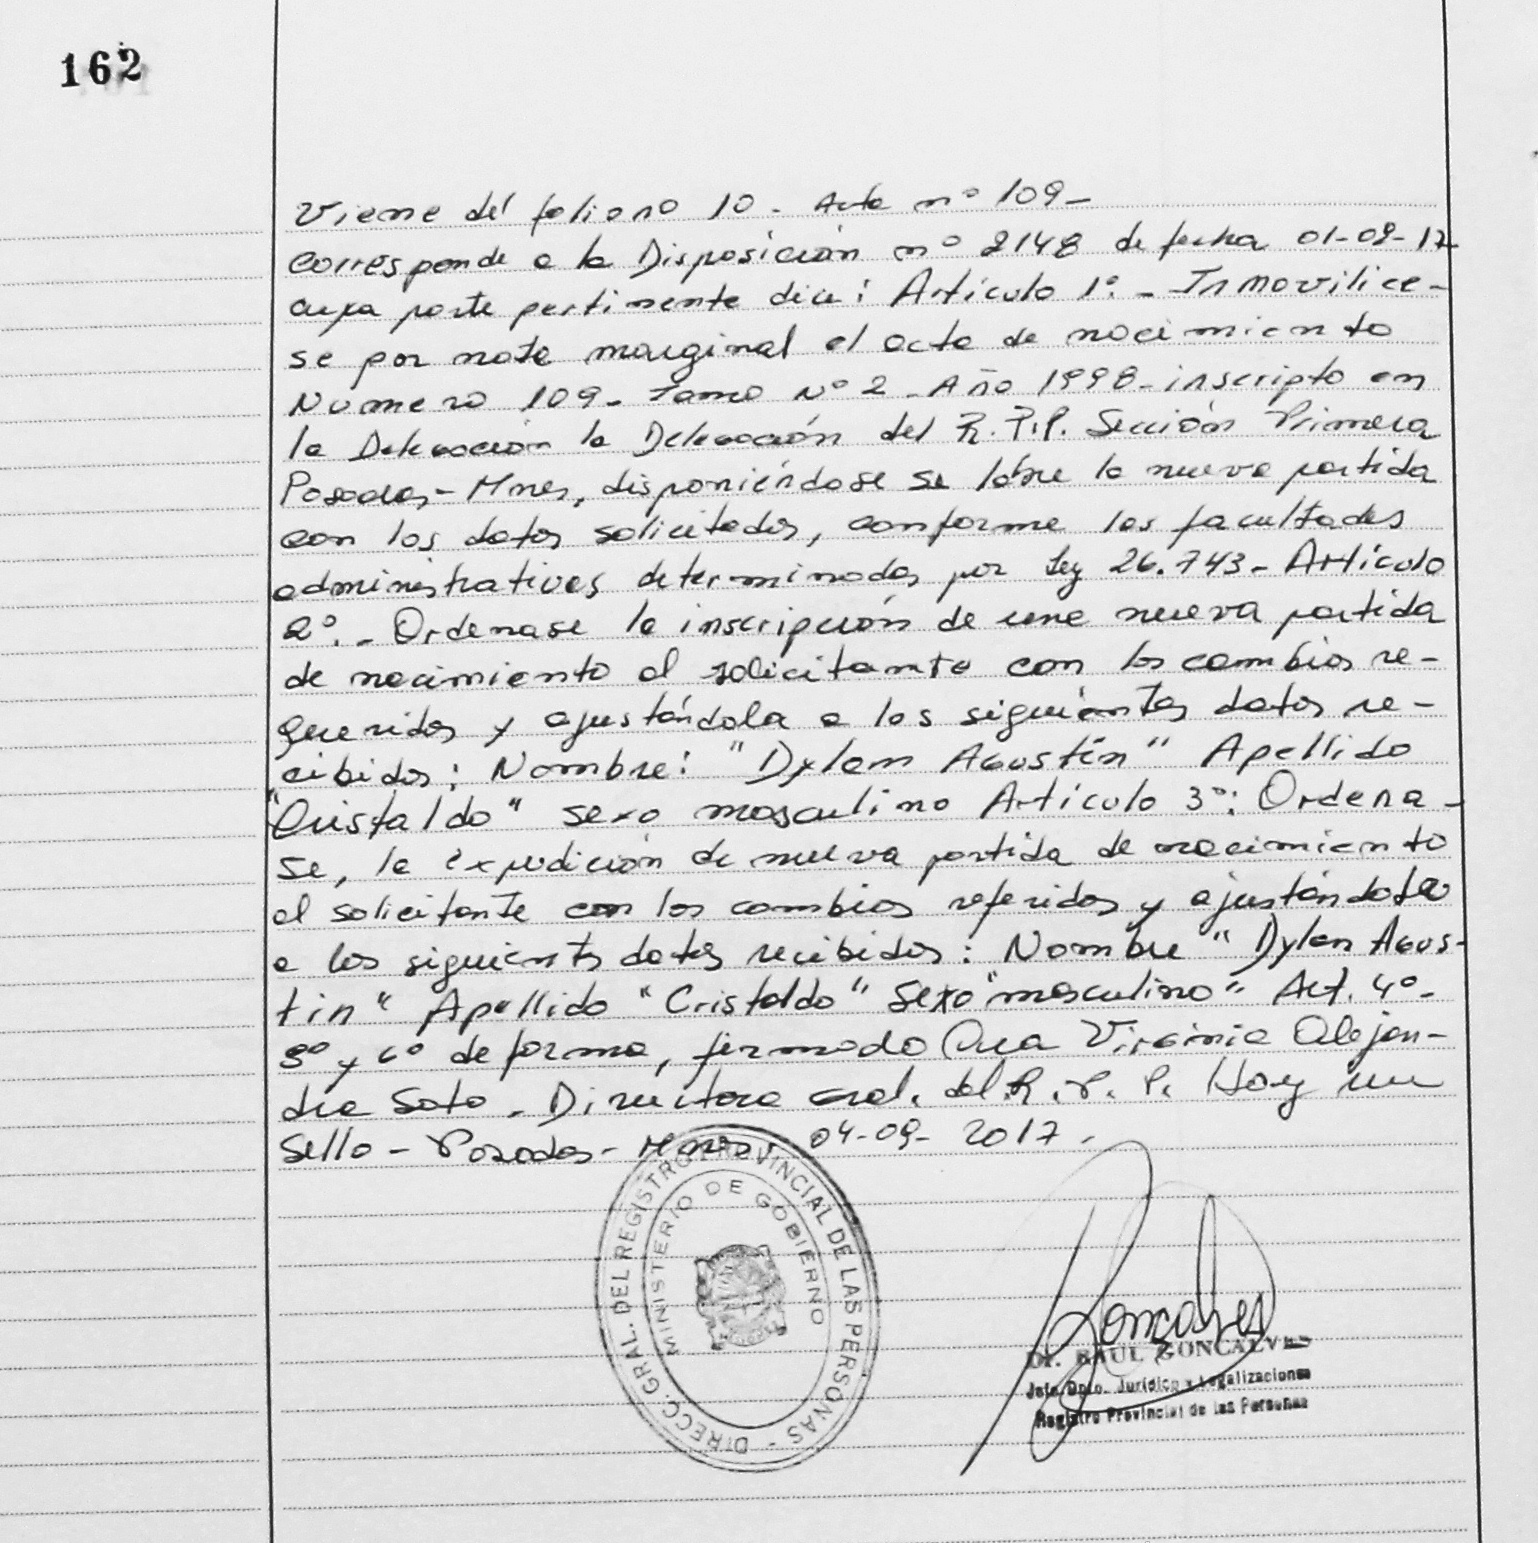 162
Viene del folio nº 10 - Acta nº 109 -
Corresponde a la Disposición nº 2148 de fecha 01-09-17
cuya parte pertinente dice: Artículo 1º. - Inmovilice-
se por nota marginal el acta de nacimiento
Número 109 - Tomo Nº 2 - Año 1998 - inscripto en
la Delegación la Delegación del R.P.P. Sección Primera
Posadas - Mnes, disponiéndose se labre la nueva partida
con los datos solicitados, conforme las facultades
administrativas determinadas por Ley 26.743 - Artículo
2º. - Ordenase la inscripción de una nueva partida
de nacimiento al solicitante con los cambios re-
queridos y ajustándola a los siguientes datos re-
cibidos: Nombre: "Dylan Agustín" Apellido
"Cristaldo" sexo masculino Artículo 3º: Ordena-
se, la expedición de nueva partida de nacimiento
al solicitante con los cambios referidos y ajustándola
a los siguientes datos recibidos: Nombre "Dylan Agus-
tin" Apellido "Cristaldo" Sexo "masculino" Art. 4º -
5º y 6º de forma, firmado Virginia Alejan-
dra Soto - Directora Gral. del R.P.P. Hay un
Sello - Posadas - Mnes, 04-09-2017.
DIRECC. GRAL. DEL REGISTRO PROVINCIAL DE LAS PERSONAS -
MINISTERIO DE GOBIERNO
Gonçalves
Dr. RAUL GONCALVES
Jefe Dpto. Jurídico y Legalizaciones
Registro Provincial de las Personas